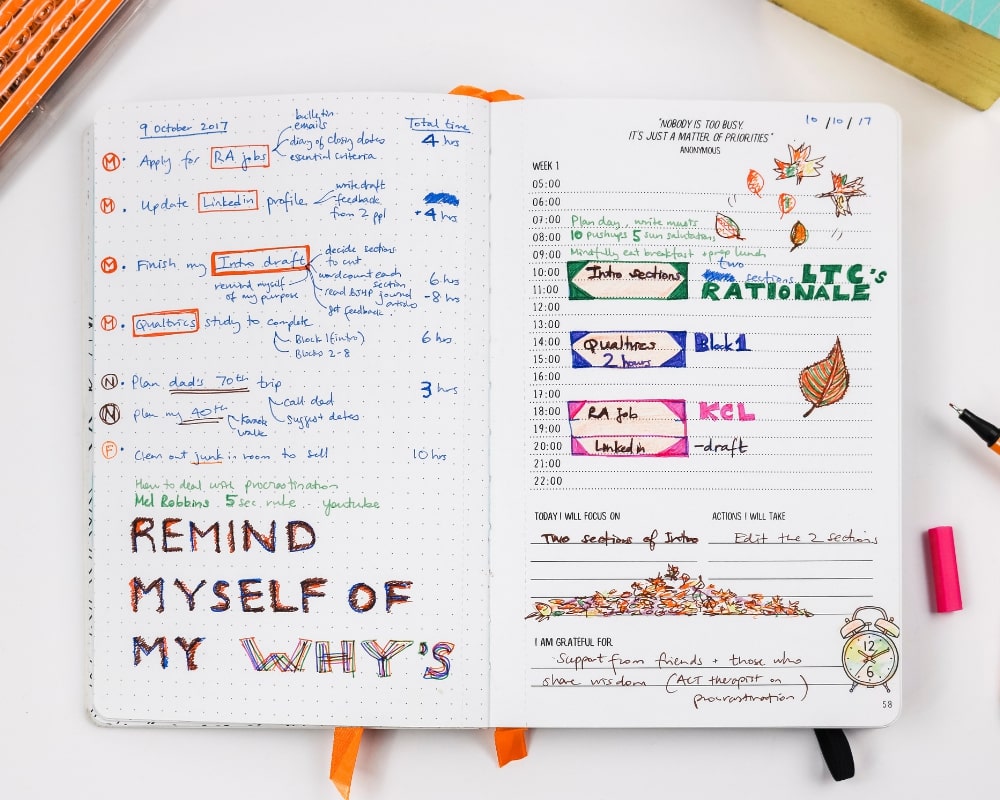 9 October 2017
Total time
bulletin
emails
diary of closing dates
essential criteria
M • Apply for RA jobs
4 hrs
M • Update Linkedin profile
write draft
feedback
from 2 ppl
4 hrs
M • Finish my Intro draft
decide sections
to cut
wordcount each
section
read BJHP journal
articles
get feedback
remind myself
of my purpose
6 hrs
-8 hrs
M • Qualtrics study to complete
Block 1 (intro)
Blocks 2-8
6 hrs
N • Plan dad's 70th trip
call dad
suggest dates
3 hrs
N • plan my 40th
Karaoke
walk
F • Clean out junk in room to sell
10 hrs
How to deal with procrastination
Mel Robbins 5 sec rule youtube
REMIND
MYSELF OF
MY WHY'S
10/10/17
"NOBODY IS TOO BUSY,
IT'S JUST A MATTER OF PRIORITIES"
ANONYMOUS
WEEK 1
05:00
06:00
07:00 Plan day, write musts
08:00 10 pushups 5 sun salutations
09:00 Mindfully eat breakfast + prep lunch
10:00 Intro sections two sections LTC's
11:00 RATIONALE
12:00
13:00
14:00 Qualtrics Block 1
15:00 2 hours
16:00
17:00
18:00 RA job KCL
19:00
20:00 Linkedin -draft
21:00
22:00
TODAY I WILL FOCUS ON
Two sections of Intro
ACTIONS I WILL TAKE
Edit the 2 sections
I AM GRATEFUL FOR
Support from friends + those who
share wisdom (ACT therapist on
procrastination)
12
6
58